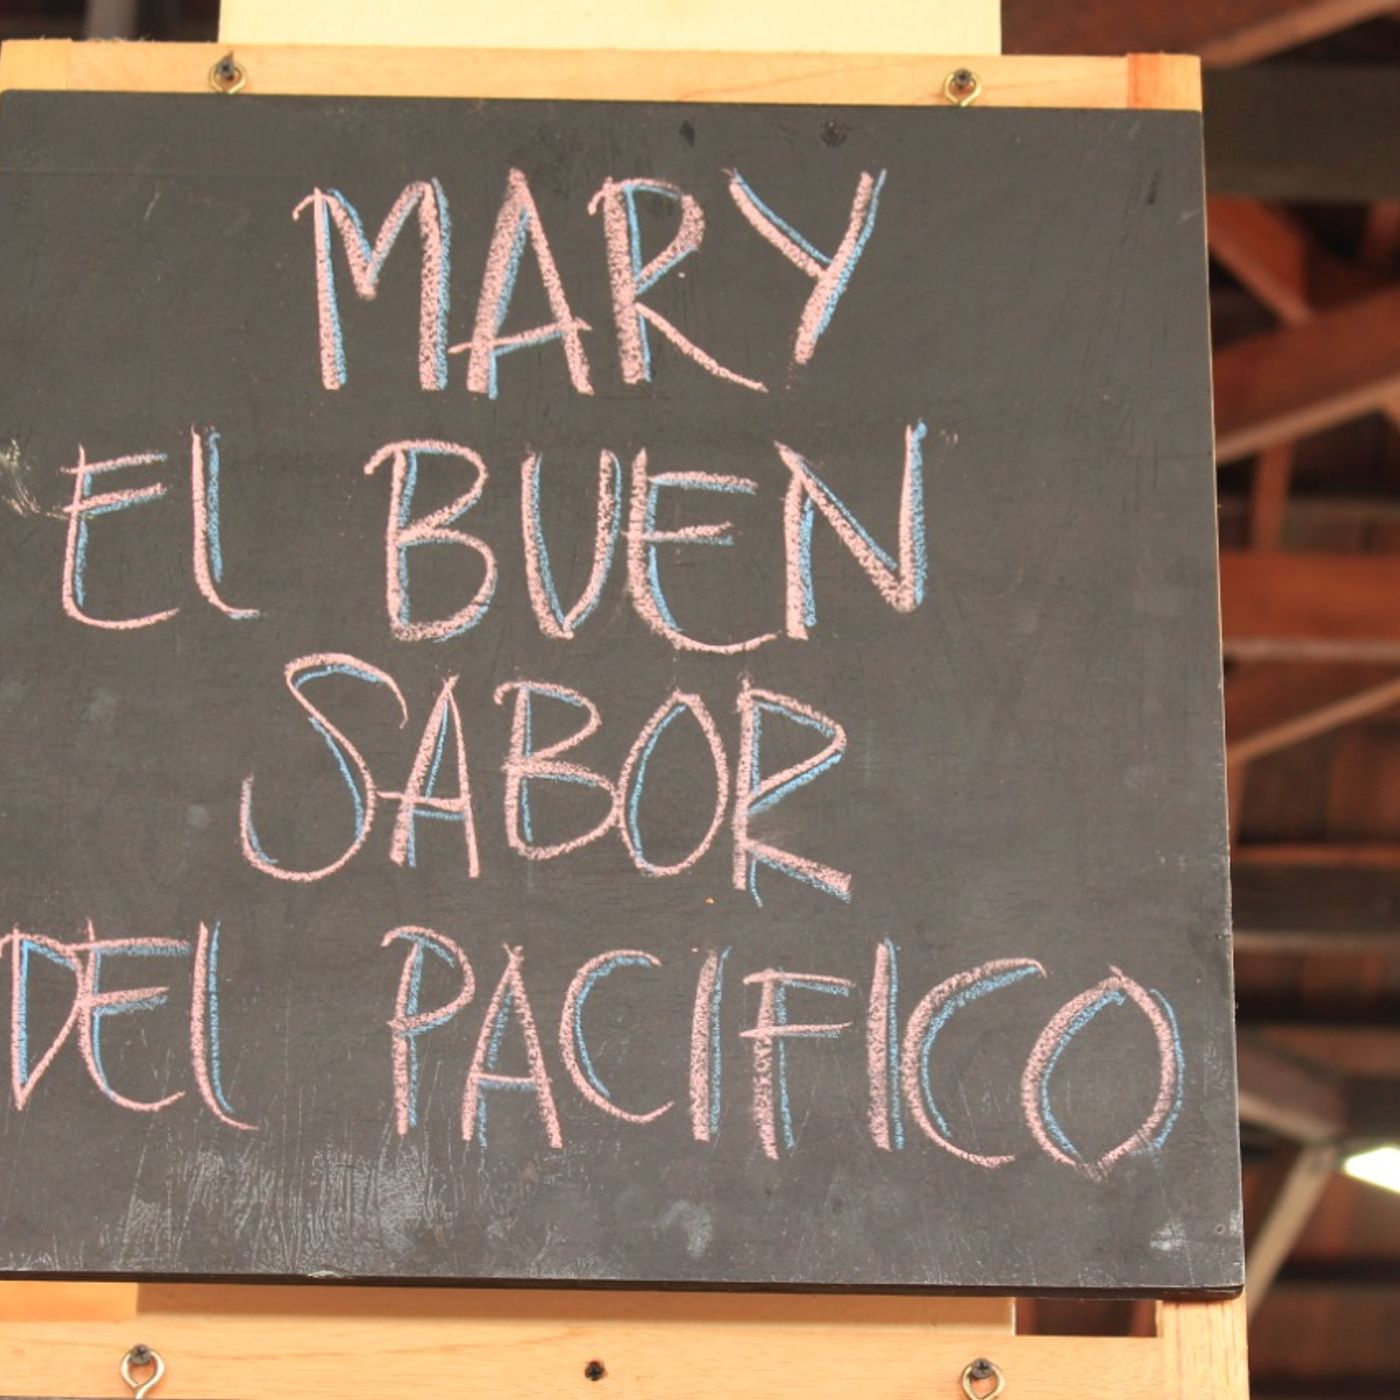 MARY
El BUEN
SABOR
DEl PACIFICO